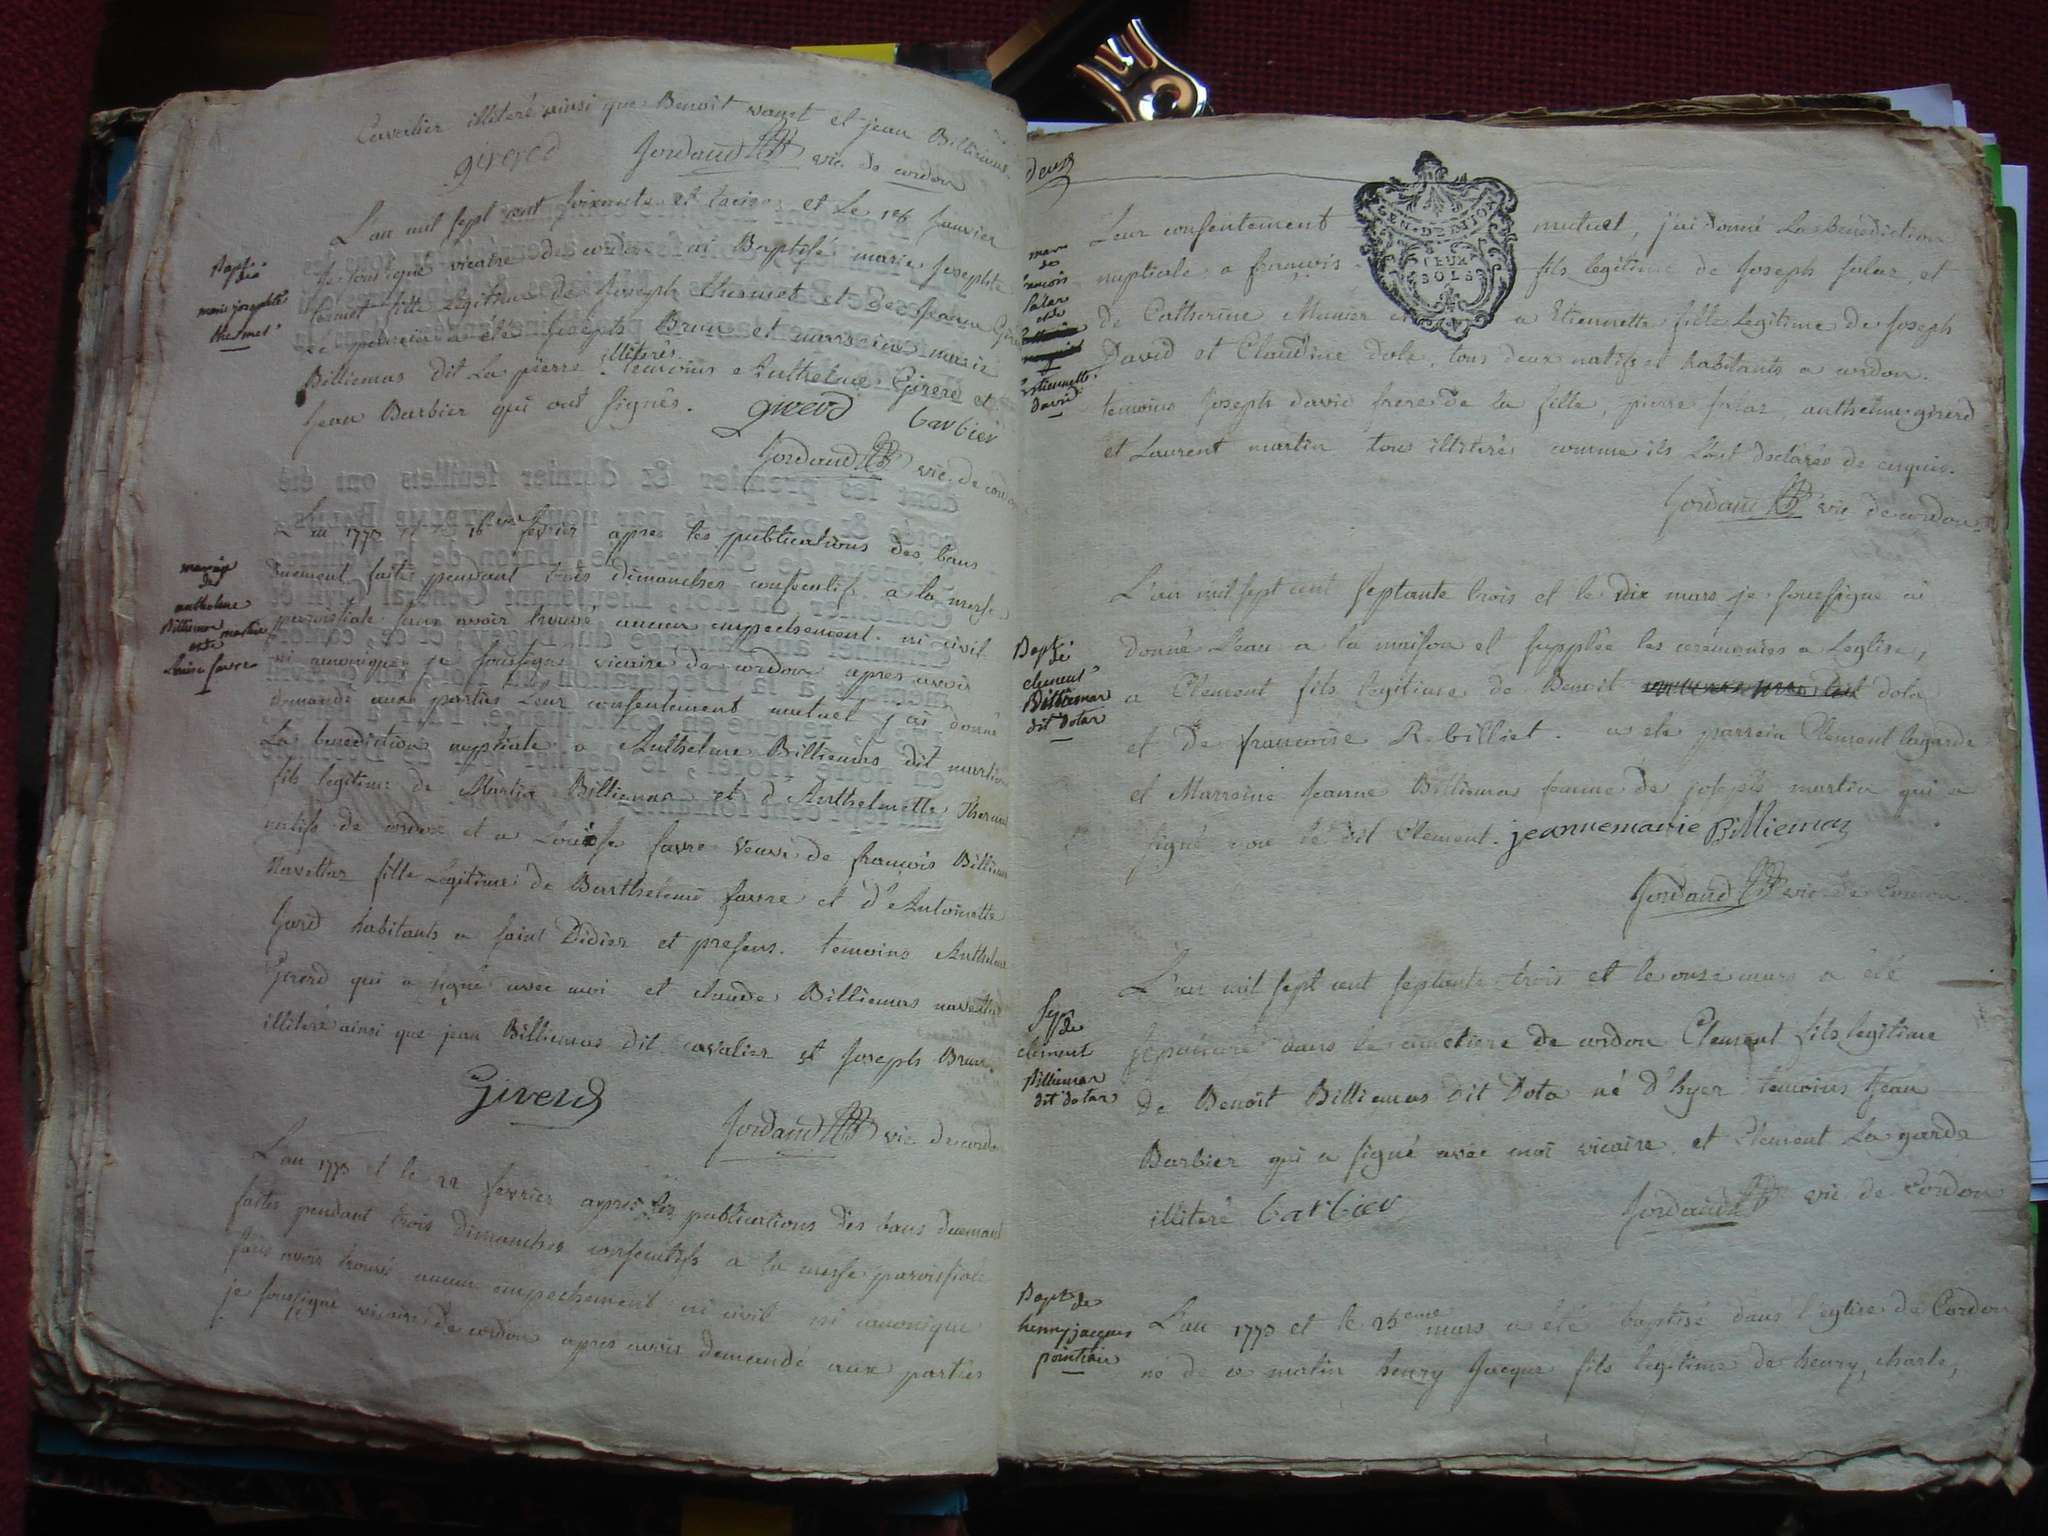 Cavalier illiteré ainsi que Benoit vauget et jean Billiemas.
girerd Jordand vic. de cordon
L'an mil sept cent soixante et treize et le 1er Janvier
Bapt.
de
marie josephte
thermet
je soussigné vicaire de cordon ai Baptisé marie Josephte
fille Legitime de Joseph thermet et de jeanne
Le parrein a été Joseph Brun et marreine marie
Billiemas dit La pierre illiterés temoins Anthelme Girerd et
jean Barbier qui ont signés. girerd barbier
Jordand vic. de cordon
L'an 1773 et le 16 fevrier apres les publications des bans
mariage
de
anthelme
Billiemas
martin
et de
Louise favre
duement faites pendant trois dimanches consecutifs a la messe
paroissiale sans avoir trouvé aucun empechement ni civil
ni canonique je soussigné vicaire de cordon apres avoir
demandé aux parties Leur consentement mutuel j'ai donné
La benediction nuptiale a Anthelme Billiemas dit martin
fils legitime de Martin Billiemas et d'Anthelmette
natifs de cordon et a Louise favre veuve de françois Billiemas
Navettaz fille Legitime de Barthelemi favre et d'Antoinette
Gard habitants a saint Didier et presens. temoins Anthelme
Girerd qui a signé avec moi et claude Billiemas
illiteré ainsi que jean Billiemas dit cavalier et Joseph Brun.
Girerd
Jordand vic. de cordon
L'an 1773 et le 22 fevrier apres les publications des bans duement
faites pendant trois dimanches consecutifs a la messe paroissiale
sans avoir trouvé aucun empechement ni civil ni canonique
je soussigné vicaire de cordon apres avoir demandé aux parties
deux
Leur consentement mutuel, j'ai donné La benediction
GEN DE DIJON
DEUX
SOLS
mar.
de
françois
et de
Etiennette
David
nuptiale a françois fils legitime de Joseph et
de Catherine Munier et a Etiennette fille Legitime de Joseph
David et Claudine dola, tous deux natifs et habitants a cordon.
temoins Joseph david frere de La fille, pierre anthelme girerd
et Laurent martin tous illiterés comme ils L'ont declarés de ce requis.
Jordand vic de cordon
L'an mil sept cent septante trois et le dix mars je soussigné ai
Bapt.
de
clement
Billiemaz
dit Dolaz
donné L'eau a la maison et supplée les ceremonies a Leglise,
a Clement fils legitime de Benoit dola
et de françoise Rebilliet. a ete parrein Clement lagarde
et Marreine Jeanne Billiemas femme de joseph martin qui a
signé non le dit Clement. jeannemarie Billiemaz
Jordand vic. de Cordon.
L'an mil sept cent septante trois et le onze mars a été
sep.
de
clement
Billiemaz
dit dolaz
sepulturé dans le cimetiere de cordon Clement fils legitime
de Benoit Billiemas dit Dola né d'hyer temoins Jean
Barbier qui a signé avec moi vicaire et Clement La garde
illiteré barbier Jordand vic de Cordon
Bapt.
de
henry jacques
L'an 1773 et le 25eme mars a été baptisé dans l'eglise de Cordon
né de ce matin henry Jacque fils legitime de henry, charle,